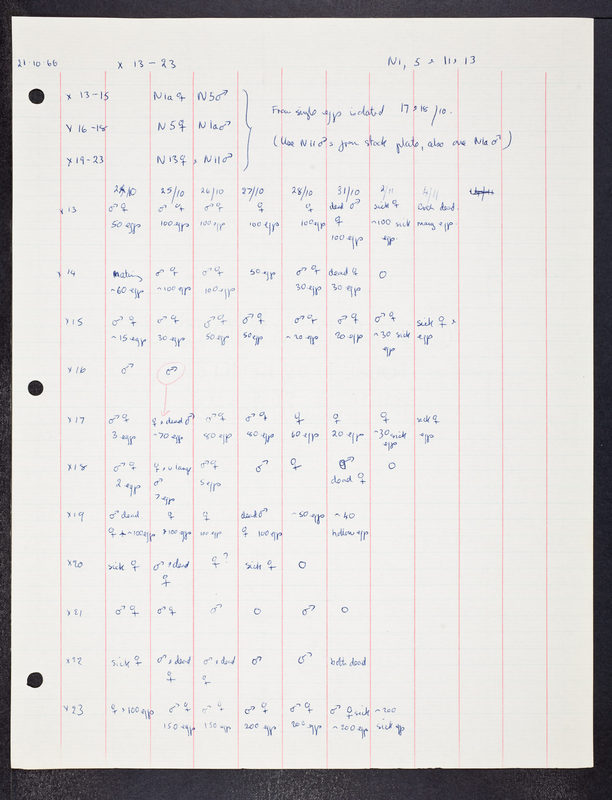 21.10.66 x 13-23 N1, 5, 11, 13
x 13-15 N1a♀ N5♂
x 16-18 N5♀ N1a♂
x 19-23 N13♀, N11♂
From single eggs isolated 17 & 18/10.
(Use N11♂s from stock plate, also one N1a♂)
24/10 25/10 26/10 27/10 28/10 31/10 2/11 4/11
x 13 ♂♀ ♂♀ ♂♀ ♀ ♀ dead ♂ sick ♀ Both dead.
50 eggs 100 eggs 100 eggs 100 eggs 100 eggs ♀ ~100 sick many eggs
100 eggs eggs.
x 14 mating ♂♀ ♂♀ 50 eggs ♂♀ dead ♀ O
~60 eggs ~100 eggs 100 eggs 30 eggs 30 eggs
x 15 ♂♀ ♂♀ ♂♀ ♂♀ ♂♀ ♂♀ ♂♀ sick ♀ &
~15 eggs 30 eggs 50 eggs 50 eggs ~20 eggs 20 eggs ~30 sick eggs
eggs
x 16 ♂ ♂
x 17 ♂♀ ♀ & dead ♂ ♂♀ ♂♀ ♀ ♀ ♀ sick ♀
3 eggs ~70 eggs 80 eggs 80 eggs 60 eggs 20 eggs ~30 sick eggs
eggs
x 18 ♂♀ ♀ & ♂♀ ♂ ♀ ♂ O
2 eggs ♂ 5 eggs dead ♀
? eggs
x 19 ♂ dead ♀ ♀ dead ♂ ~50 eggs ~40
♀ + ~100 eggs >100 eggs 100 eggs ♀ 100 eggs hollow eggs
x 20 sick ♀ ♂ & dead ♀? sick ♀ O
♀
x 21 ♂♀ ♂♀ ♂ O ♂ O
x 22 sick ♀ ♂ & dead ♂ & dead ♂ ♂ both dead
♀ ♀
x 23 ♀ & 100 eggs ♂♀ ♂♀ ♂♀ ♂♀ ♂♀ sick ~200
150 eggs 150 eggs 200 eggs 200 eggs ~200 eggs sick eggs